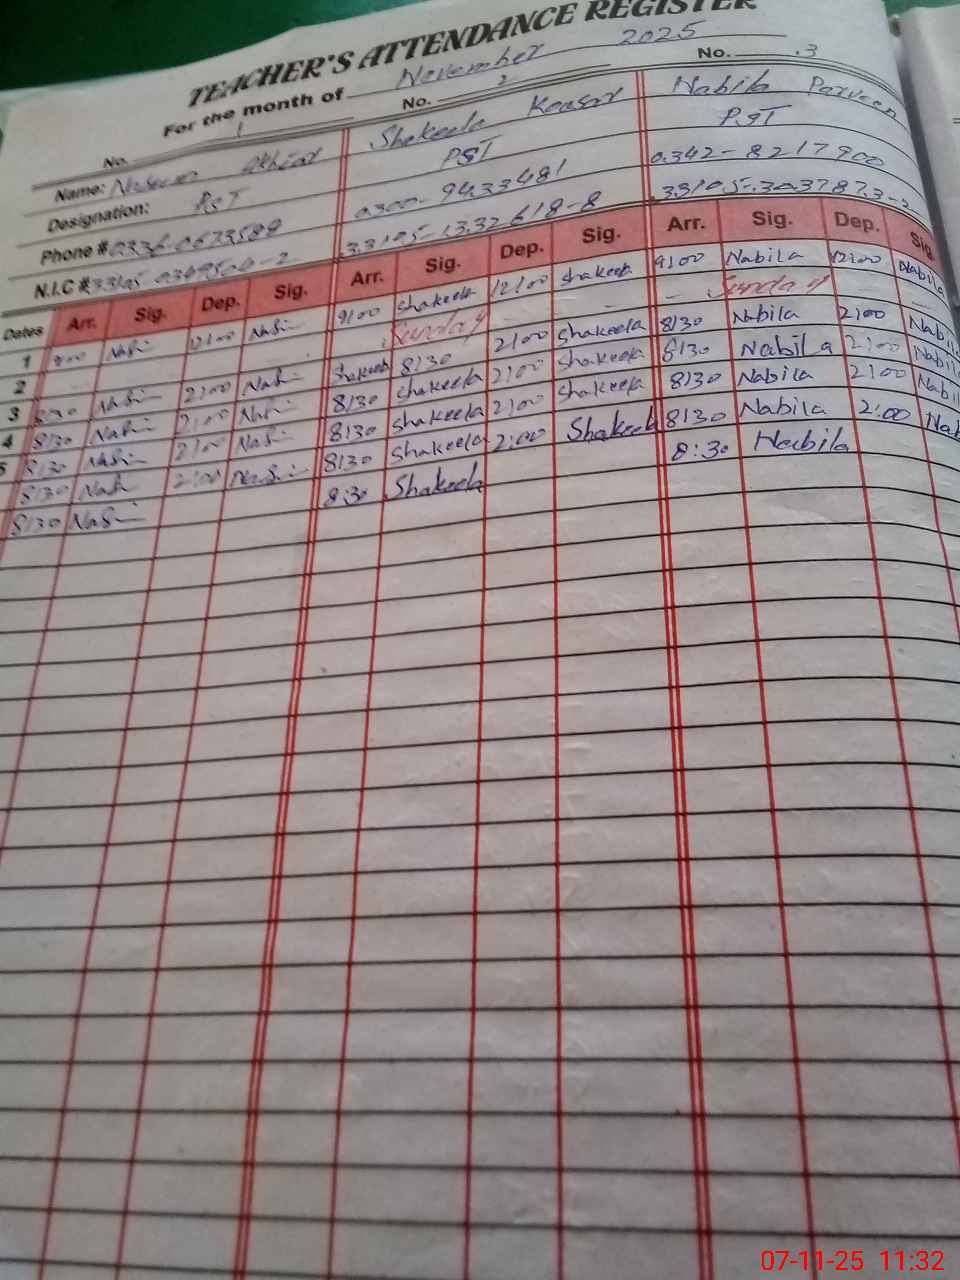 TEACHER'S ATTENDANCE REGISTER
For the month of November 2025
No. 1 No. 2 No. 3
Name: Akhtar Shakeela Kousar Nabila Parveen
Designation: PST PST PST
Phone # 0336-0673589 0300-9433481 0342-8217900
N.I.C # 33105-1332618-8 33105-3037873-2
Dates Arr. Sig. Dep. Sig. Arr. Sig. Dep. Sig. Arr. Sig. Dep. Sig.
1 9:00 Nasi 12:00 Nasi 9:00 Shakeela 12:00 Shakeela 9:00 Nabila 12:00 Nabila
2 - Sunday - - - Sunday -
3 8:30 Nasi 2:00 Nasi Shakeela 8:30 2:00 Shakeela 8:30 Nabila 2:00 Nabila
4 8:30 Nasi 2:00 Nasi 8:30 Shakeela 2:00 Shakeela 8:30 Nabila 2:00 Nabila
5 8:30 Nasi 2:00 Nasi 8:30 Shakeela 2:00 Shakeela 8:30 Nabila 2:00 Nabila
8:30 Nasi 2:00 Nasi 8:30 Shakeela 2:00 Shakeela 8:30 Nabila 2:00 Nab
8:30 Nasi 8:30 Shakeela 8:30 Nabila
07-11-25 11:32